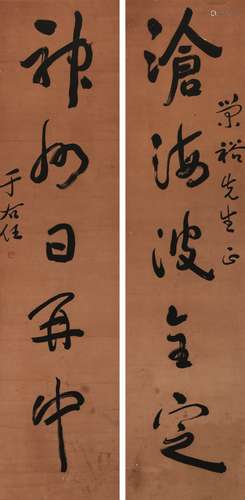 滄海波全定
榮裕先生正
神州日再中
于右任